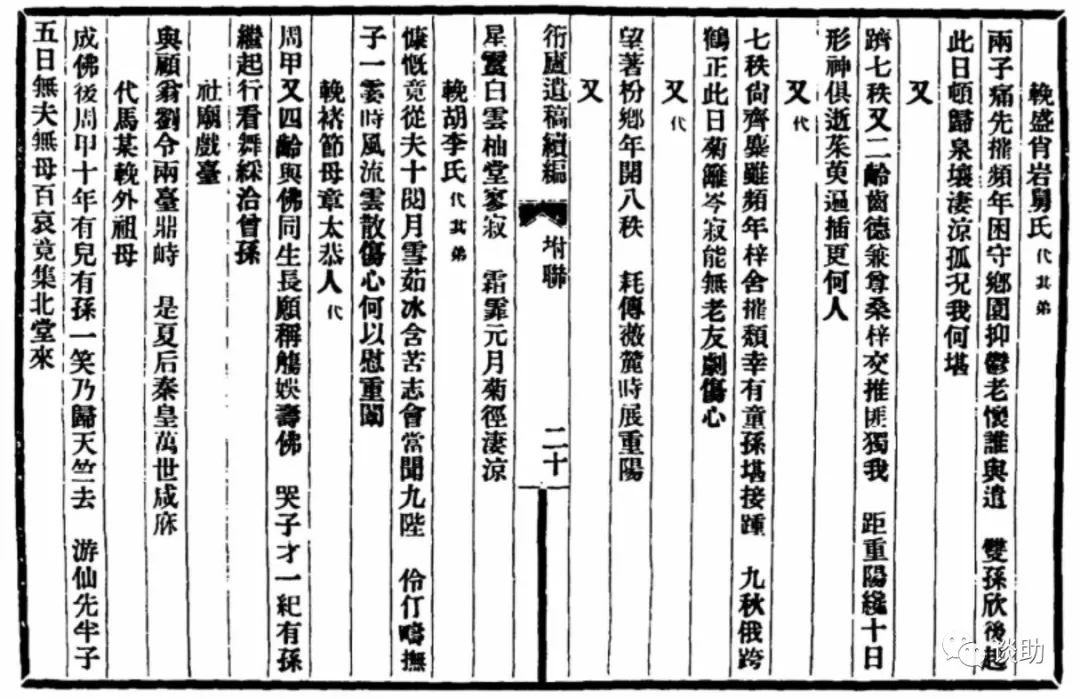 輓盛省岩舅氏 代其弟
兩子痛先摧頻年困守鄉園抑鬱老懷誰與遣 雙孫欣後起
此日頓歸泉壤淒涼孤況我何堪
又
躋七秩又二齡齒德兼尊桑梓交推匪獨我 距重陽纔十日
形神俱逝茱萸遍插更何人
又 代
七秩尙齊麋難頻年梓舍摧頹幸有童孫堪接踵 九秋俄跨
鶴正此日菊籬岑寂能無老友劇傷心
又 代
望著枌鄉年開八秩 耗傳薇麓時展重陽
又
衎廬遺稿續編 坿聯 二十
星霣白雲柚堂寥寂 霜霏元月菊徑淒涼
輓胡李氏 代其弟
慷慨竟從夫十閱月雪茹冰含苦志會當聞九陛 伶仃疇撫
子一霎時風流雲散傷心何以慰重闈
輓褚節母章太恭人 代
周甲又四齡與佛同生長願稱觴娛壽佛 哭子才一紀有孫
繼起行看舞綵洽曾孫
社廟戲臺
與顧翁劉令兩臺鼎峙 是夏后秦皇萬世咸庥
代馬某輓外祖母
成佛後周甲十年有兒有孫一笑乃歸天竺去 游仙先半子
五日無夫無母百哀竟集北堂來
谈助